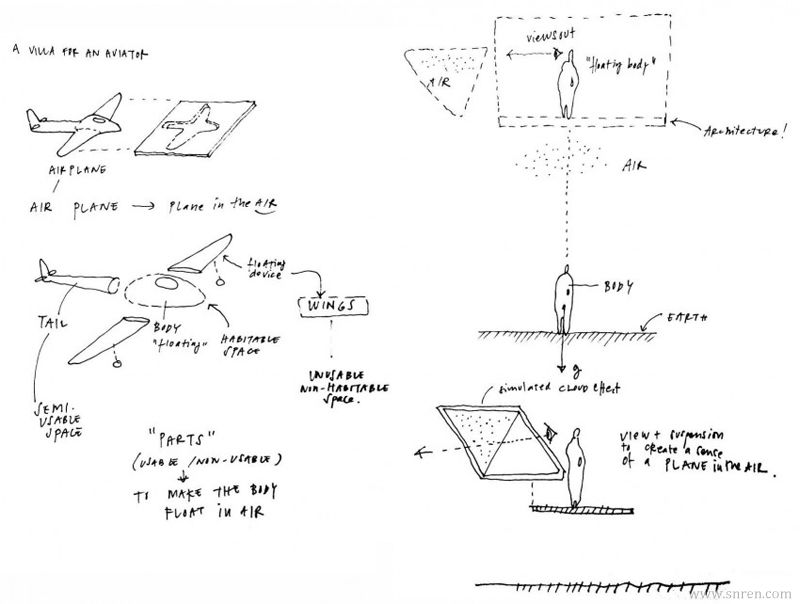 A VILLA FOR AN AVIATOR
AIRPLANE
AIR PLANE → Plane in the AIR
floating
device
WINGS
UNUSABLE
NON-HABITABLE
space.
TAIL
BODY
"floating"
HABITABLE
SPACE
SEMI-
USABLE
SPACE
"PARTS"
(USABLE / NON-USABLE)
TO MAKE THE BODY
FLOAT IN AIR
views out
"floating body"
AIR
Architecture!
AIR
BODY
EARTH
g
simulated cloud effect
view + suspension
to create a sense
of a PLANE in the AIR.
www.snren.com